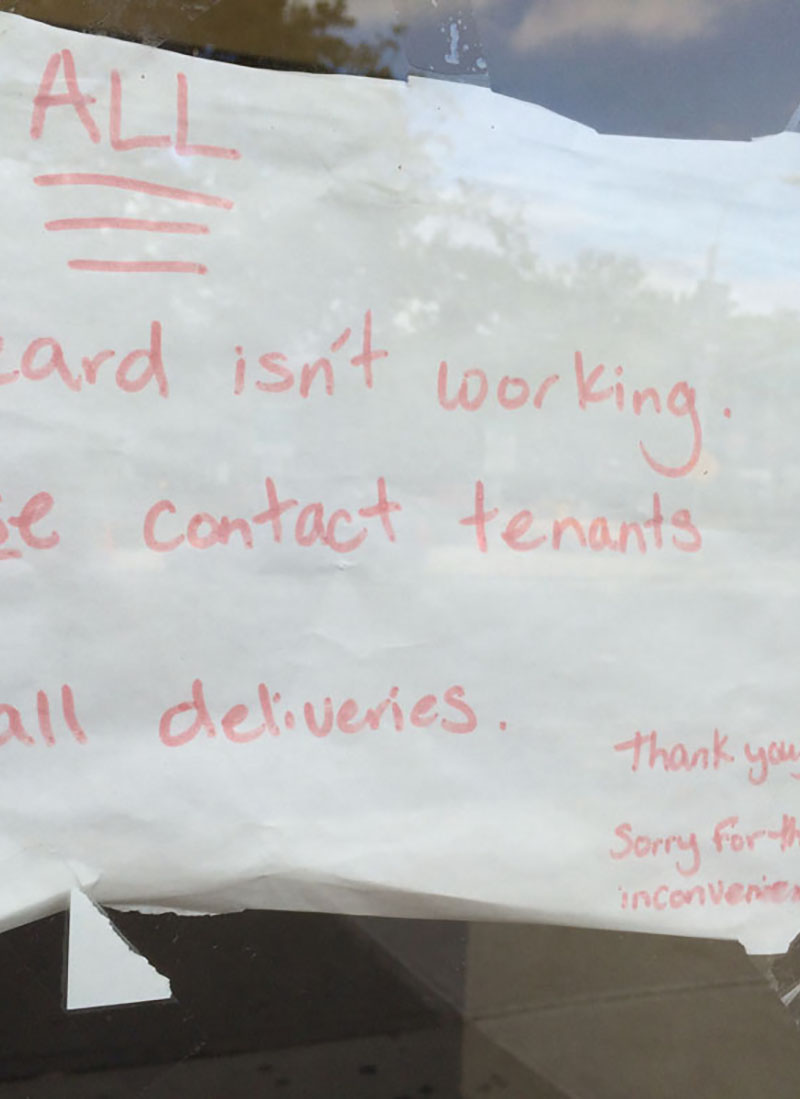 ALL
eard isn't working.
se contact tenants
all deliveries.
Thank you,
Sorry for th
inconvenien